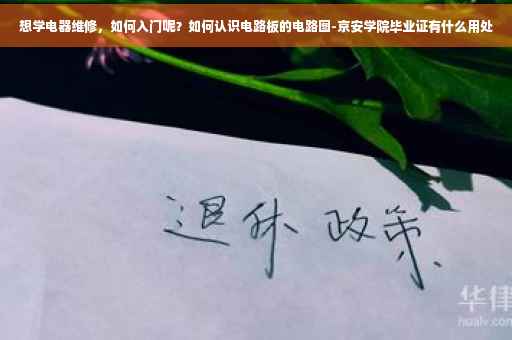 想学电器维修，如何入门呢？如何认识电路板的电路图-京安学院毕业证有什么用处
退休 政策
华律
hualv.com